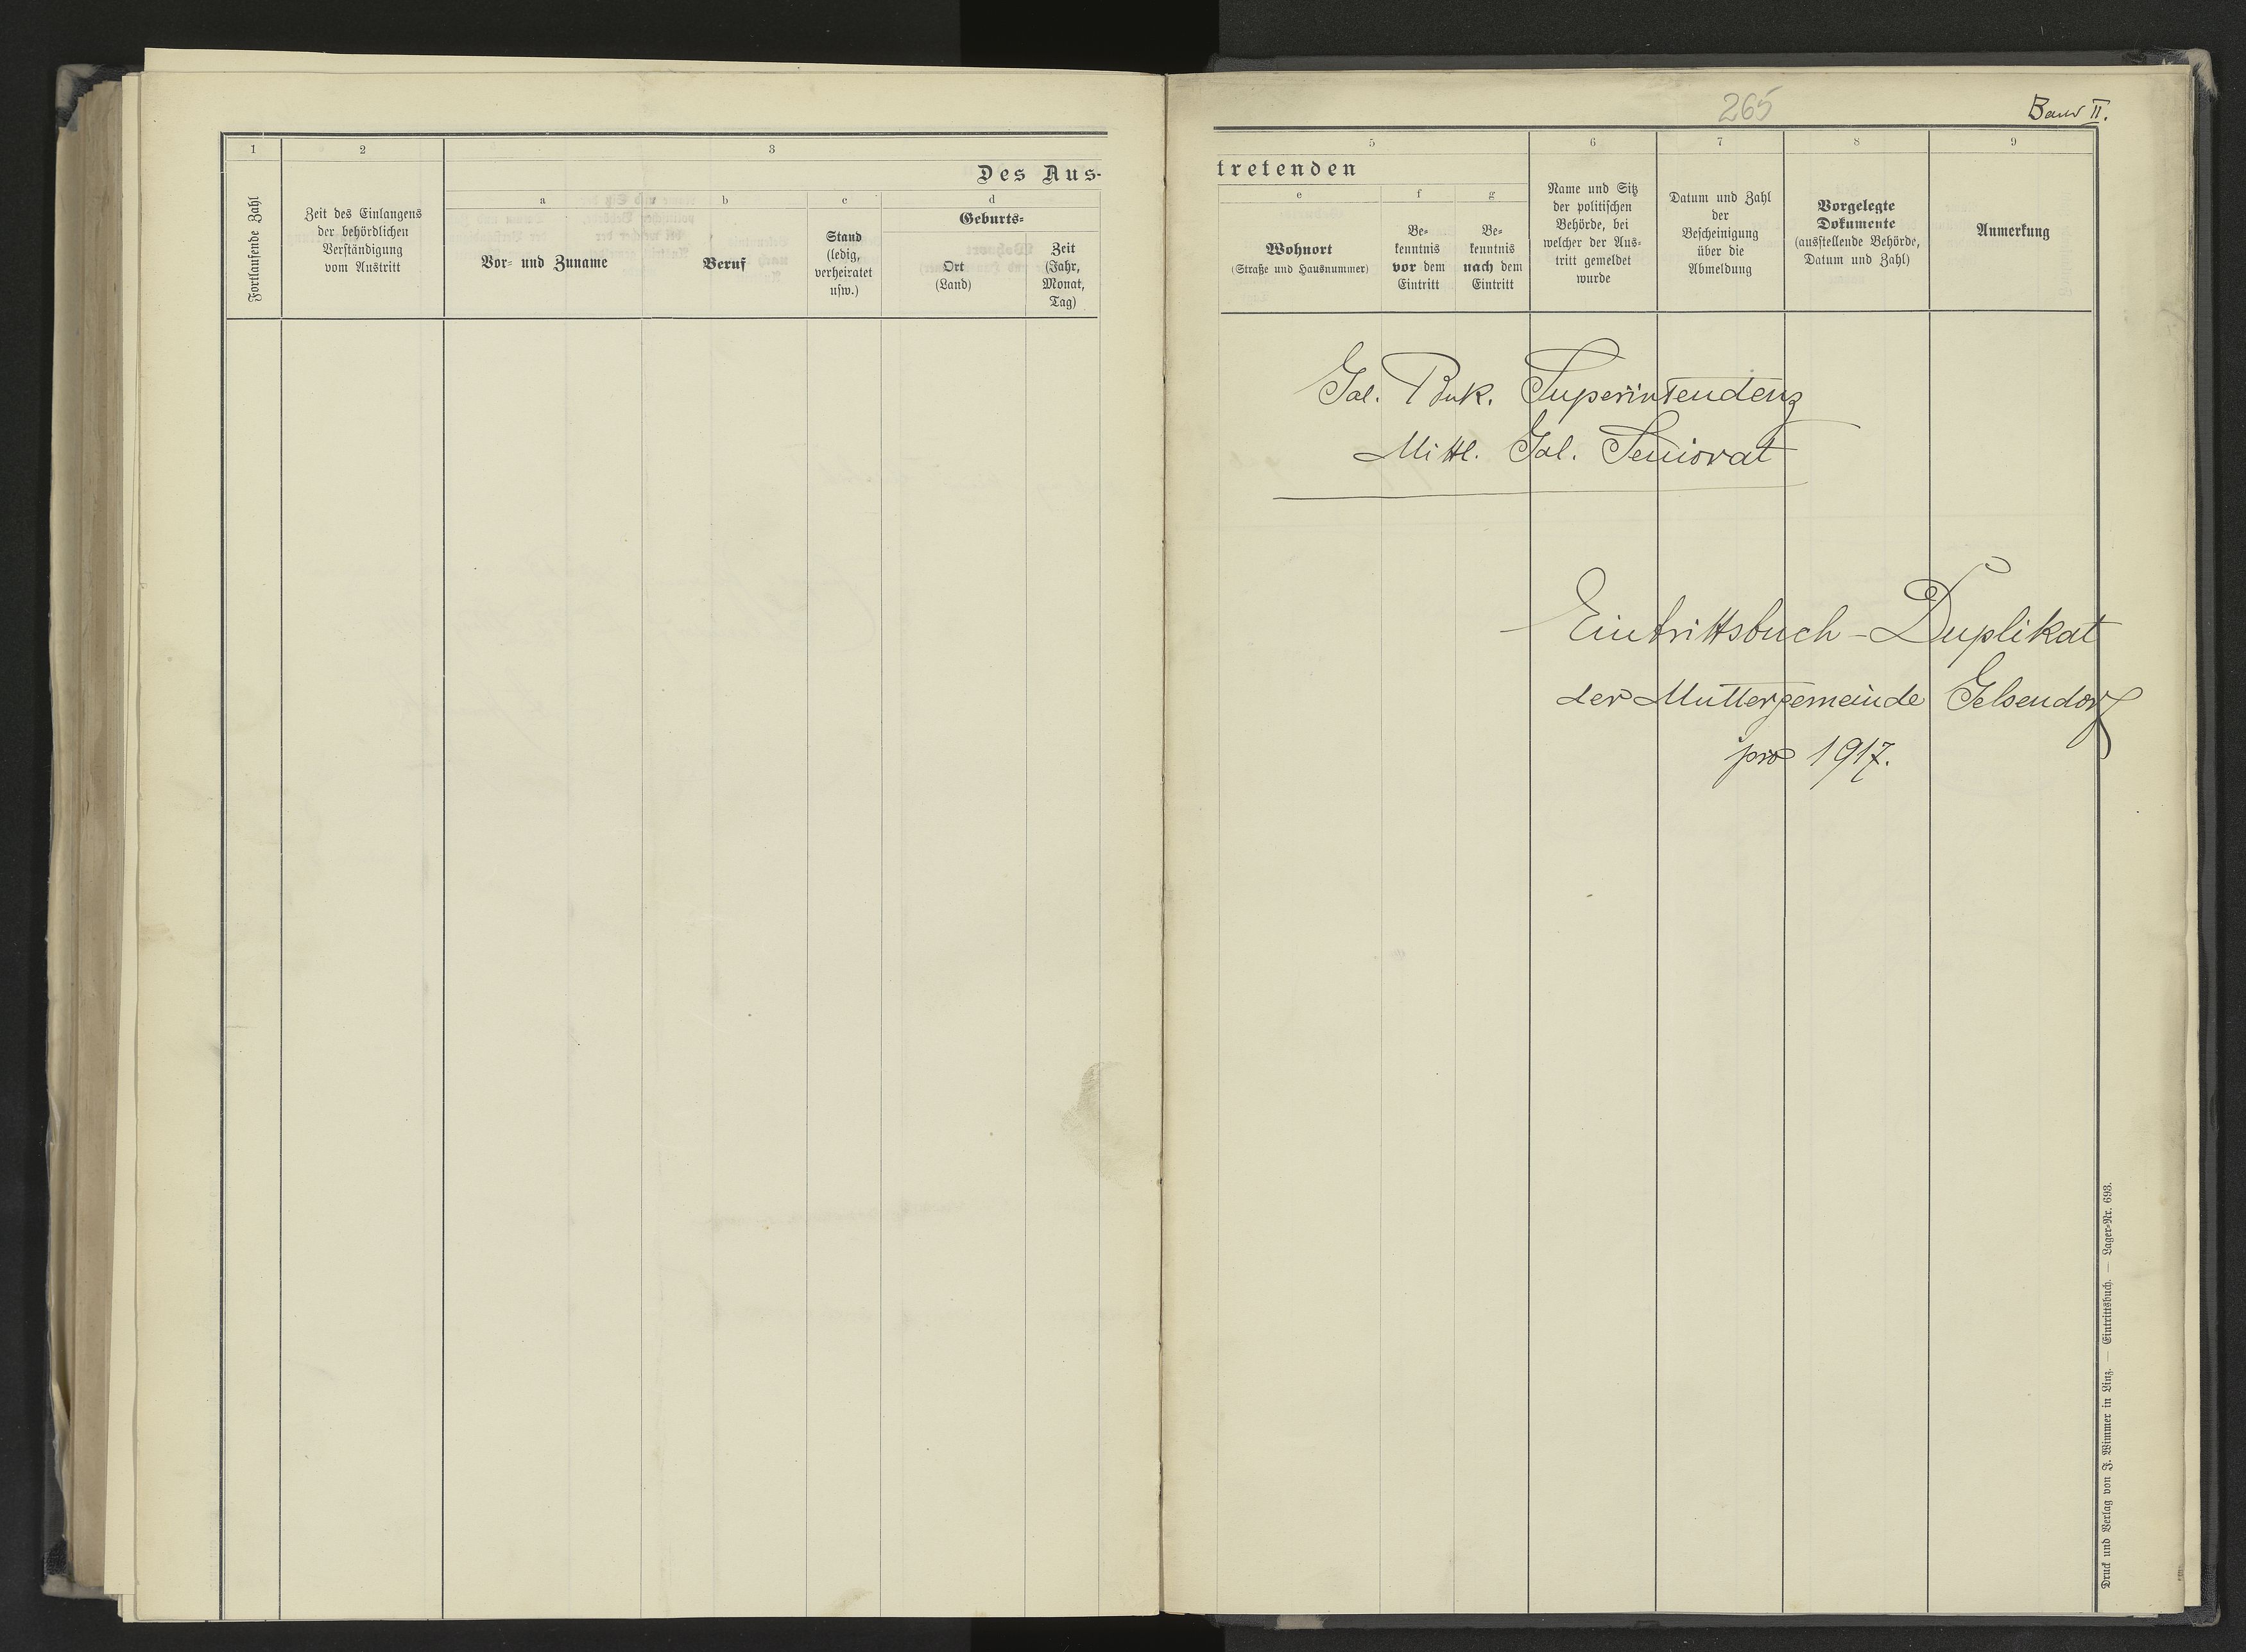 1
2
3
Des Aus-
Fortlaufende Zahl
Zeit des Einlangens
der behördlichen
Verständigung
vom Austritt
a
b
c
d
Vor- und Zuname
Beruf
Stand
(ledig,
verheiratet
usw.)
Geburts-
Ort
(Land)
Zeit
(Jahr,
Monat,
Tag)
265
Band II.
5
6
7
8
9
tretenden
e
f
g
Wohnort
(Straße und Hausnummer)
Be-
kenntnis
vor dem
Eintritt
Be-
kenntnis
nach dem
Eintritt
Name und Sitz
der politischen
Behörde, bei
welcher der Aus-
tritt gemeldet
wurde
Datum und Zahl
der
Bescheinigung
über die
Abmeldung
Vorgelegte
Dokumente
(ausstellende Behörde,
Datum und Zahl)
Anmerkung
Gal. Buk. Superintendenz
Mittl. Gal. Seniorat
Eintrittsbuch-Duplikat
der Muttergemeinde Gelsendorf
pro 1917.
Druck und Verlag von F. Wimmer in Linz. — Eintrittsbuch. — Lager-Nr. 693.